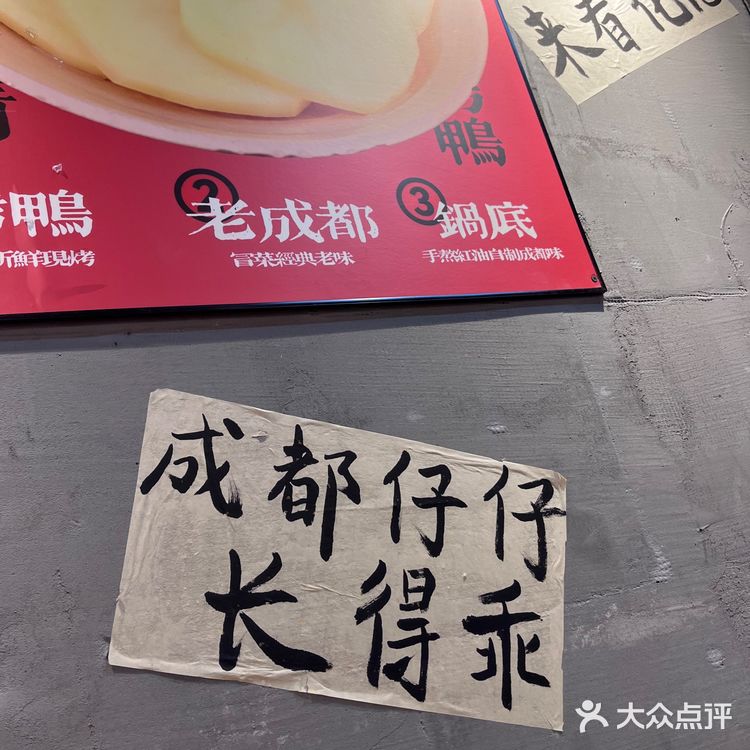 来看
鴨
鴨
②老成都
③鍋底
鮮現烤
冒菜經典老味
手熬紅油自制成都味
成都仔仔
长得乖
大众点评